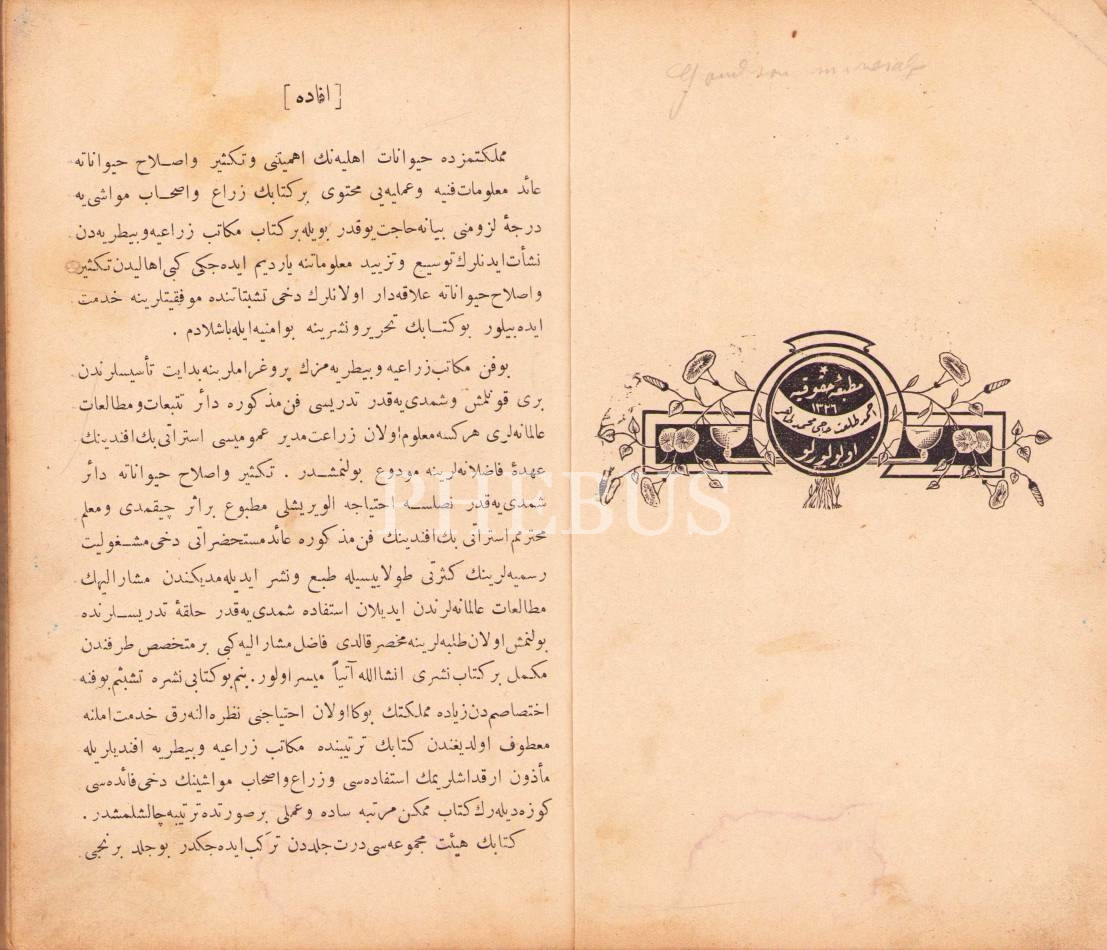 [ افاده ]
مملكتمزده حيوانات اهليه‌نك اهميتنى وتكثير واصلاح حيواناته
عائد معلومات فنيه وعمليه‌يى محتوى بر كتابك زراع واصحاب مواشى‌يه
درجۀ لزومنى بيانه حاجت يوقدر بويله بر كتاب مكاتب زراعيه وبيطريه‌دن
نشأت ايدنلرك توسيع وتزييد معلوماتنه يارديم ايده‌جكى كبى اهاليدن تكثير
واصلاح حيواناته علاقه‌دار اولانلرك دخى تشبثاتنده موفقيتلرينه خدمت
ايده‌بيلور بو كتابك تحرير ونشرينه بو امنيه ايله باشلادم .
بو فن مكاتب زراعيه وبيطريه‌مزك پروغراملرينه بدايت تأسيسلرندن
برى قونلمش وشمدى‌يه‌قدر تدريسى فن مذكوره دائر تتبعات ومطالعات
عالمانه‌لرى هركسه معلوم اولان زراعت مدير عموميسى استراتى بك افندينك
عهدۀ فاضلانه‌لرينه مودوع بولنمشدر . تكثير واصلاح حيواناته دائر
شمدى‌يه‌قدر احتياجه الويريشلى مطبوع بر اثر چيقمدى ومعلم
محترمم استراتى بك افندينك فن مذكوره عائد مستحضراتى دخى مشغوليت
رسميه‌لرينك كثرتى طولاييسيله طبع ونشر ايديله‌مديكندن مشاراليهك
مطالعات عالمانه‌لرندن ايديلان استفاده شمدى‌يه‌قدر حلقۀ تدريسلرنده
بولنمش اولان طلبه‌لرينه منحصر قالدى فاضل مشاراليه كبى بر متخصص طرفندن
مكمل بر كتاب نشرى انشاالله آتياً ميسر اولور . بنم بو كتابى نشره تشبثم بو فنه
اختصاصم‌دن زياده مملكتك بوكا اولان احتياجنى نظره اله‌رق خدمت املنه
معطوف اولديغندن كتابك ترتيبنده مكاتب زراعيه وبيطريه افنديلريله
مأذون ارقداشلريمك استفاده‌سى وزراع واصحاب مواشينك دخى فائده‌سى
كوزه‌ديله‌رك كتاب ممكن مرتبه ساده وعملى بر صورتده ترتيبه چالشلمشدر .
كتابك هيئت مجموعه‌سى درت جلددن تركب ايده‌جكدر بو جلد برنجى
مطبعۀ حقوقيه
١٣٢٦
احمد طلعت حاجى محمد طاهر
PHEBUS